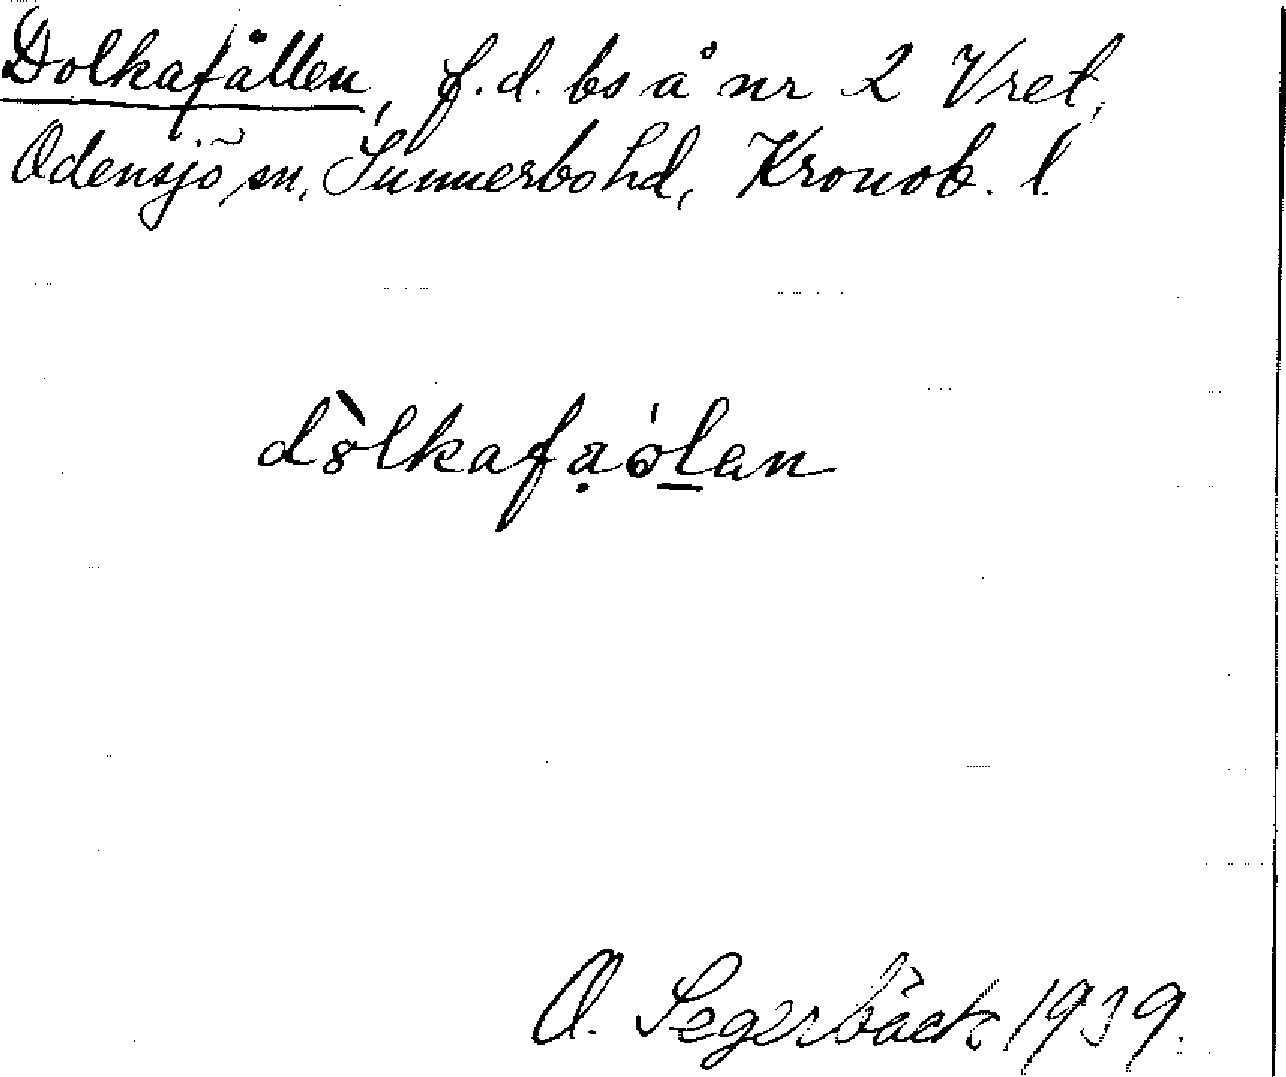 Dolkafållen, f.d. bs å nr 2 Vret,
Odensjö sn, Sunnerbo hd, Kronob. l.
dòlkafạólan
O. Segerbäck 1939.